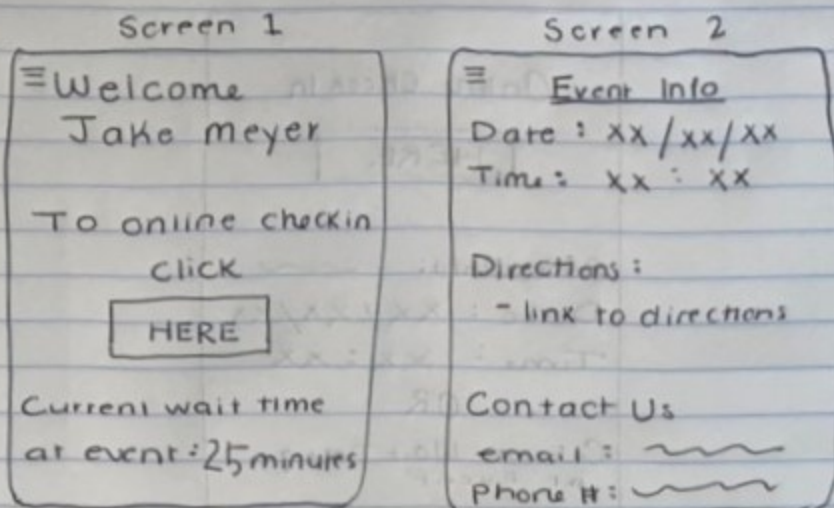 Screen 1
Welcome
Jake meyer
To online checkin
click
HERE
Current wait time
at event: 25 minutes
Screen 2
Event Info
Date: xx/xx/xx
Time: xx : xx
Directions:
- link to directions
Contact Us
email:
Phone #: